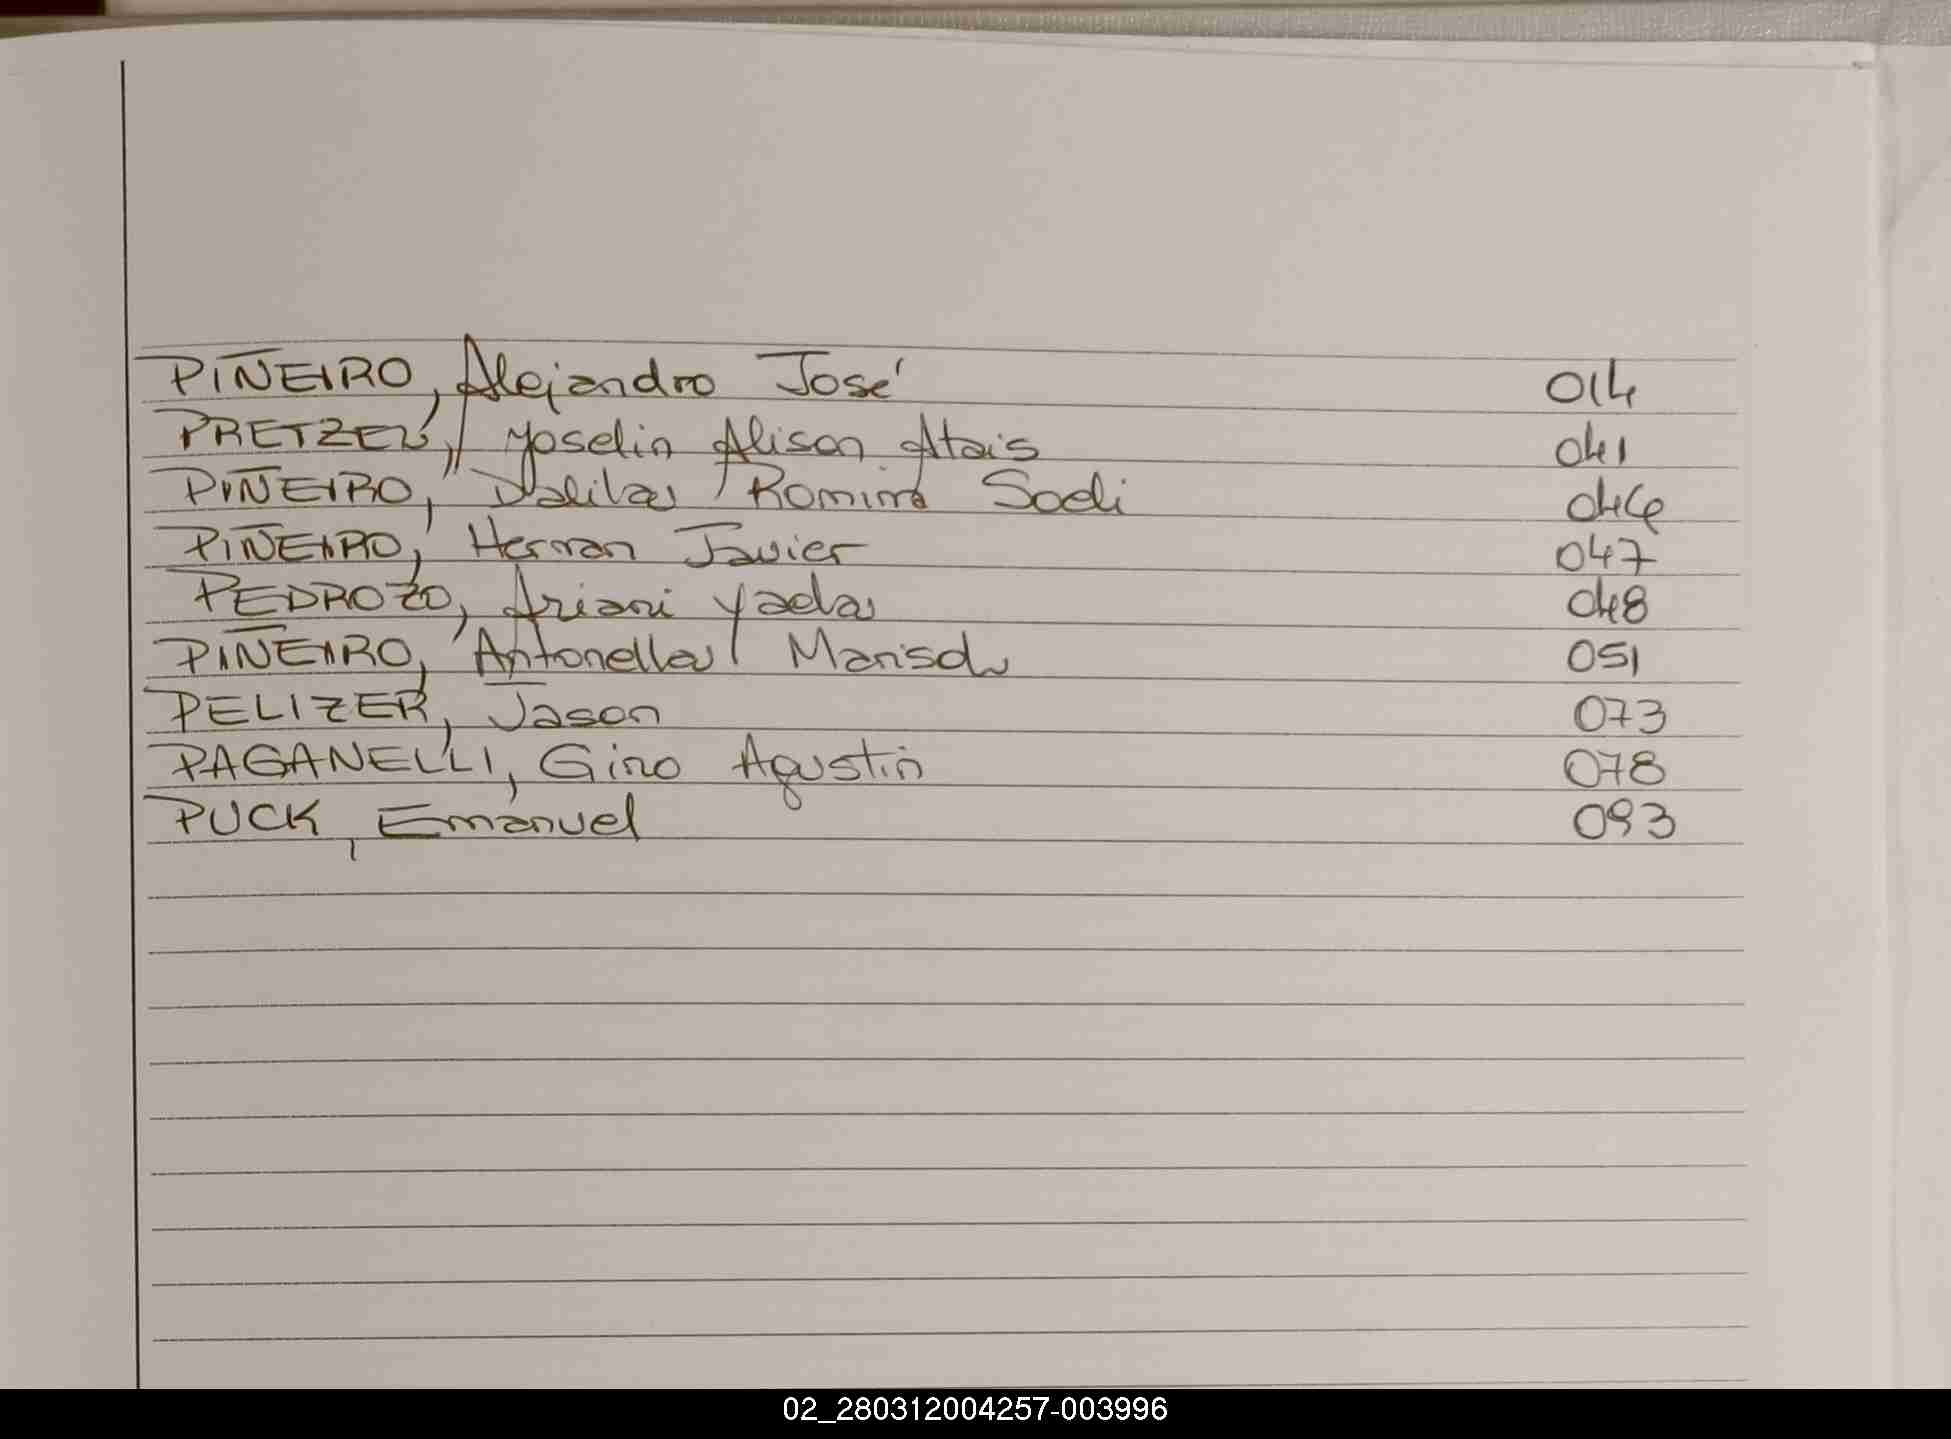 PIÑEIRO, Alejandro José 014
PRETZEL, Yoselin Alison Atais 041
PIÑEIRO, Dalila Romina Soeli 044
PIÑEIRO, Hernan Javier 047
PEDROZO, Ariani Yaela 048
PIÑEIRO, Antonella Marisol 051
PELIZER, Jason 073
PAGANELLI, Gino Agustin 078
PUCK, Emanuel 093
02_280312004257-003996